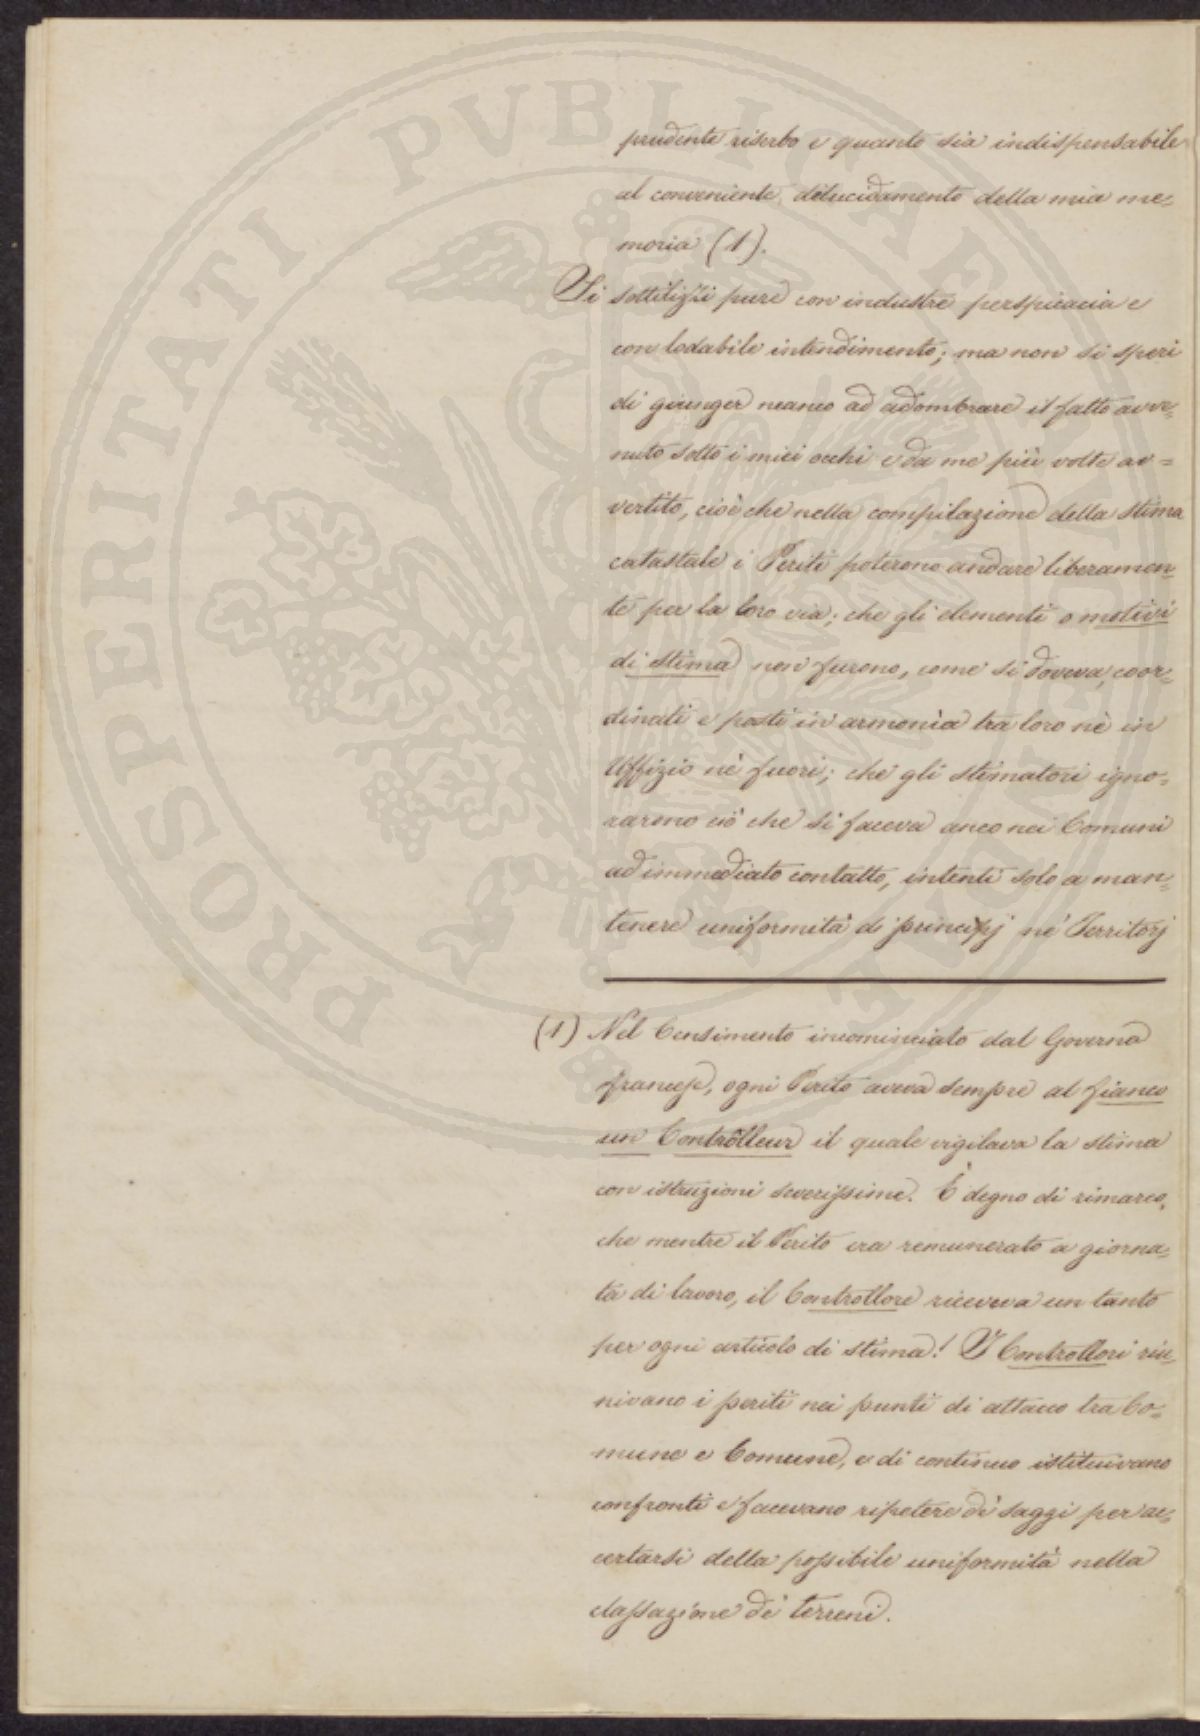 prudente riserbo e quanto sia indispensabile
al conveniente dilucidamento della mia me=
moria (1).
Si sottilizzi pure con industre perspicacia e
con lodabile intendimento; ma non si speri
di giunger neanco ad adombrare il fatto avve=
nuto sotto i miei occhi e da me più volte av=
vertito, cioè che nella compilazione della stima
catastale i Periti poterono andare liberamen=
te per la loro via; che gli elementi o motivi
di stima non furono, come si doveva, coor=
dinati e posti in armonia tra loro nè in
Uffizio nè fuori; che gli stimatori igno=
rarono ciò che si faceva anco nei Comuni
ad immediato contatto, intenti solo a man=
tenere uniformità di principj ne' Territorj
(1) Nel Censimento incominciato dal Governo
francese, ogni Perito aveva sempre al fianco
un Contrôlleur il quale vigilava la stima
con istruzioni severissime. È degno di rimarco,
che mentre il Perito era remunerato a giorna=
ta di lavoro, il Controllore riceveva un tanto
per ogni articolo di stima! I Controllori riu=
nivano i periti nei punti di attacco tra Co=
mune e Comune, e di continuo istituivano
confronti e facevano ripetere de' saggi per ac=
certarsi della possibile uniformità nella
classazione de' terreni.
PROSPERITATI PVBLICAE